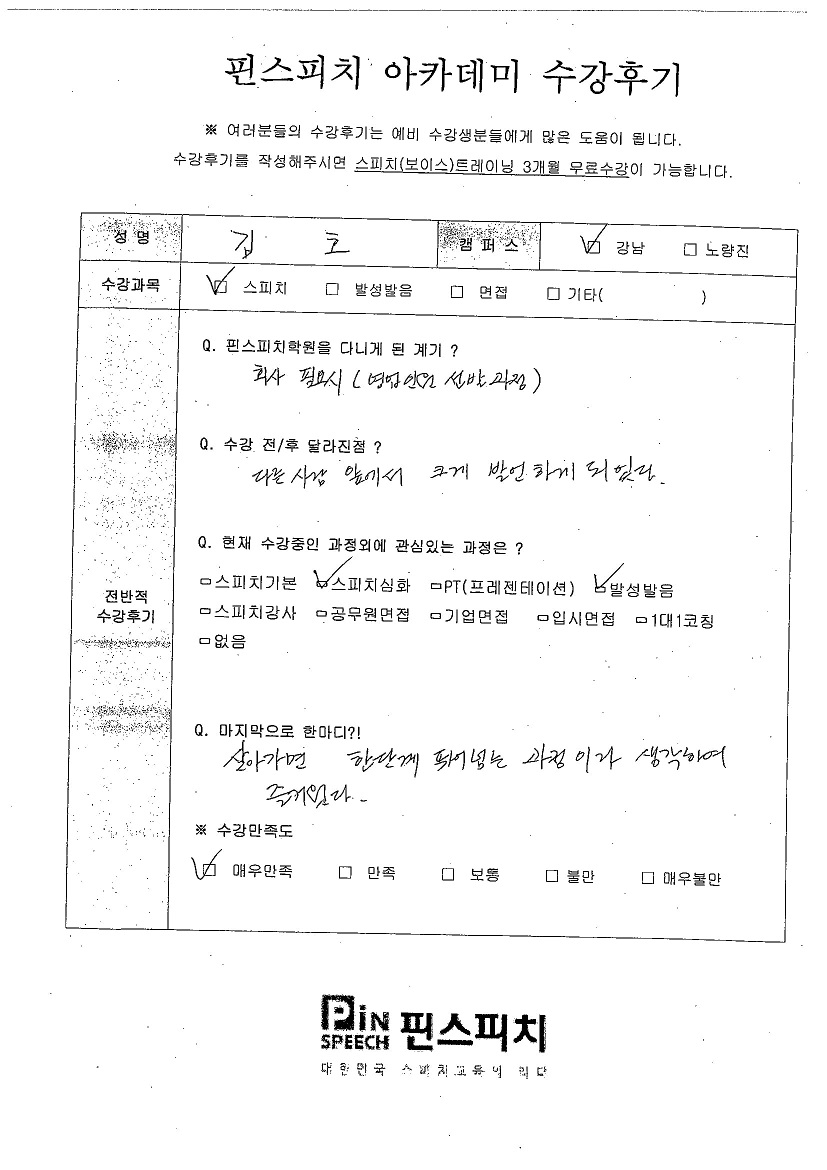 핀스피치 아카데미 수강후기
※ 여러분들의 수강후기는 예비 수강생분들에게 많은 도움이 됩니다.
수강후기를 작성해주시면 스피치(보이스)트레이닝 3개월 무료수강이 가능합니다.
성명 김 호 캠퍼스 강남 노량진
수강과목 스피치 발성발음 면접 기타( )
전반적 수강후기
Q. 핀스피치학원을 다니게 된 계기 ?
회사 필요시 ( 영업인원 선발과정 )
Q. 수강 전/후 달라진점 ?
다른사람 앞에서 크게 발언하게 되었다.
Q. 현재 수강중인 과정외에 관심있는 과정은 ?
스피치기본 스피치심화 PT(프레젠테이션) 발성발음
스피치강사 공무원면접 기업면접 입시면접 1대1코칭
없음
Q. 마지막으로 한마디?!
살아가면 한단계 뛰어넘는 과정이라 생각하여
즐거웠다.
※ 수강만족도
매우만족 만족 보통 불만 매우불만
PiN SPEECH 핀스피치
대한민국 스피치교육의